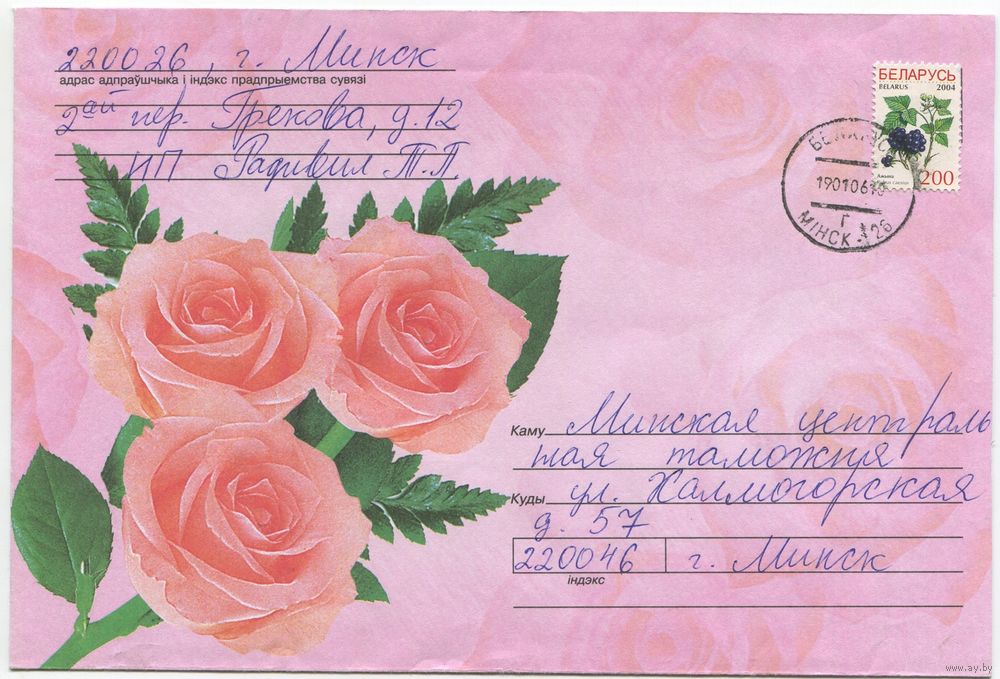 220026, г. Минск
адрас адпраўшчыка і індэкс прадпрыемства сувязі
2ай пер. Грекова, д. 12
ИП Радивил Т.П.
БЕЛАРУСЬ
BELARUS 2004
Ажына
Rubus caesius
200
190106
Г
МІНСК - 26
Каму Минская централь
ная таможня
Куды ул. Халмогорская
д. 57
220046 г. Минск
індэкс
www.ay.by